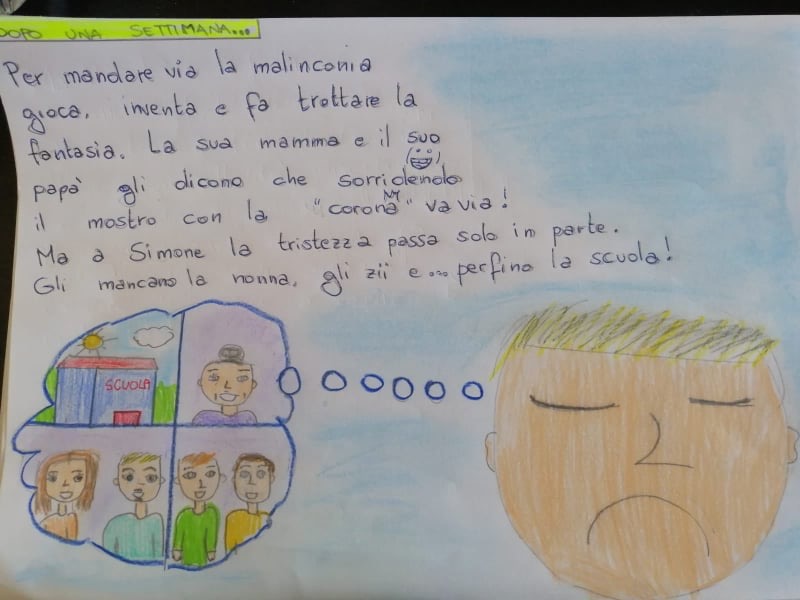 DOPO UNA SETTIMANA...
Per mandare via la malinconia
gioca, inventa e fa trottare la
fantasia. La sua mamma e il suo
papà gli dicono che sorridendo
il mostro con la "corona" va via!
Ma a Simone la tristezza passa solo in parte.
Gli mancano la nonna, gli zii e... perfino la scuola!
SCUOLA